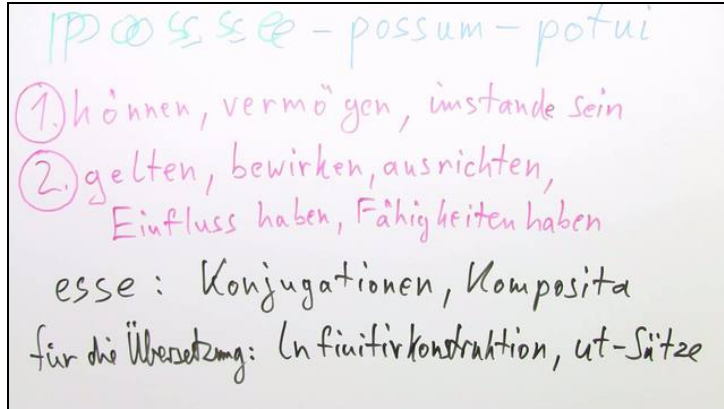 posse - possum - potui
1. können, vermögen, imstande sein
2. gelten, bewirken, ausrichten,
Einfluss haben, Fähigkeiten haben
esse: Konjugationen, Komposita
für die Übersetzung: Infinitivkonstruktion, ut-Sätze